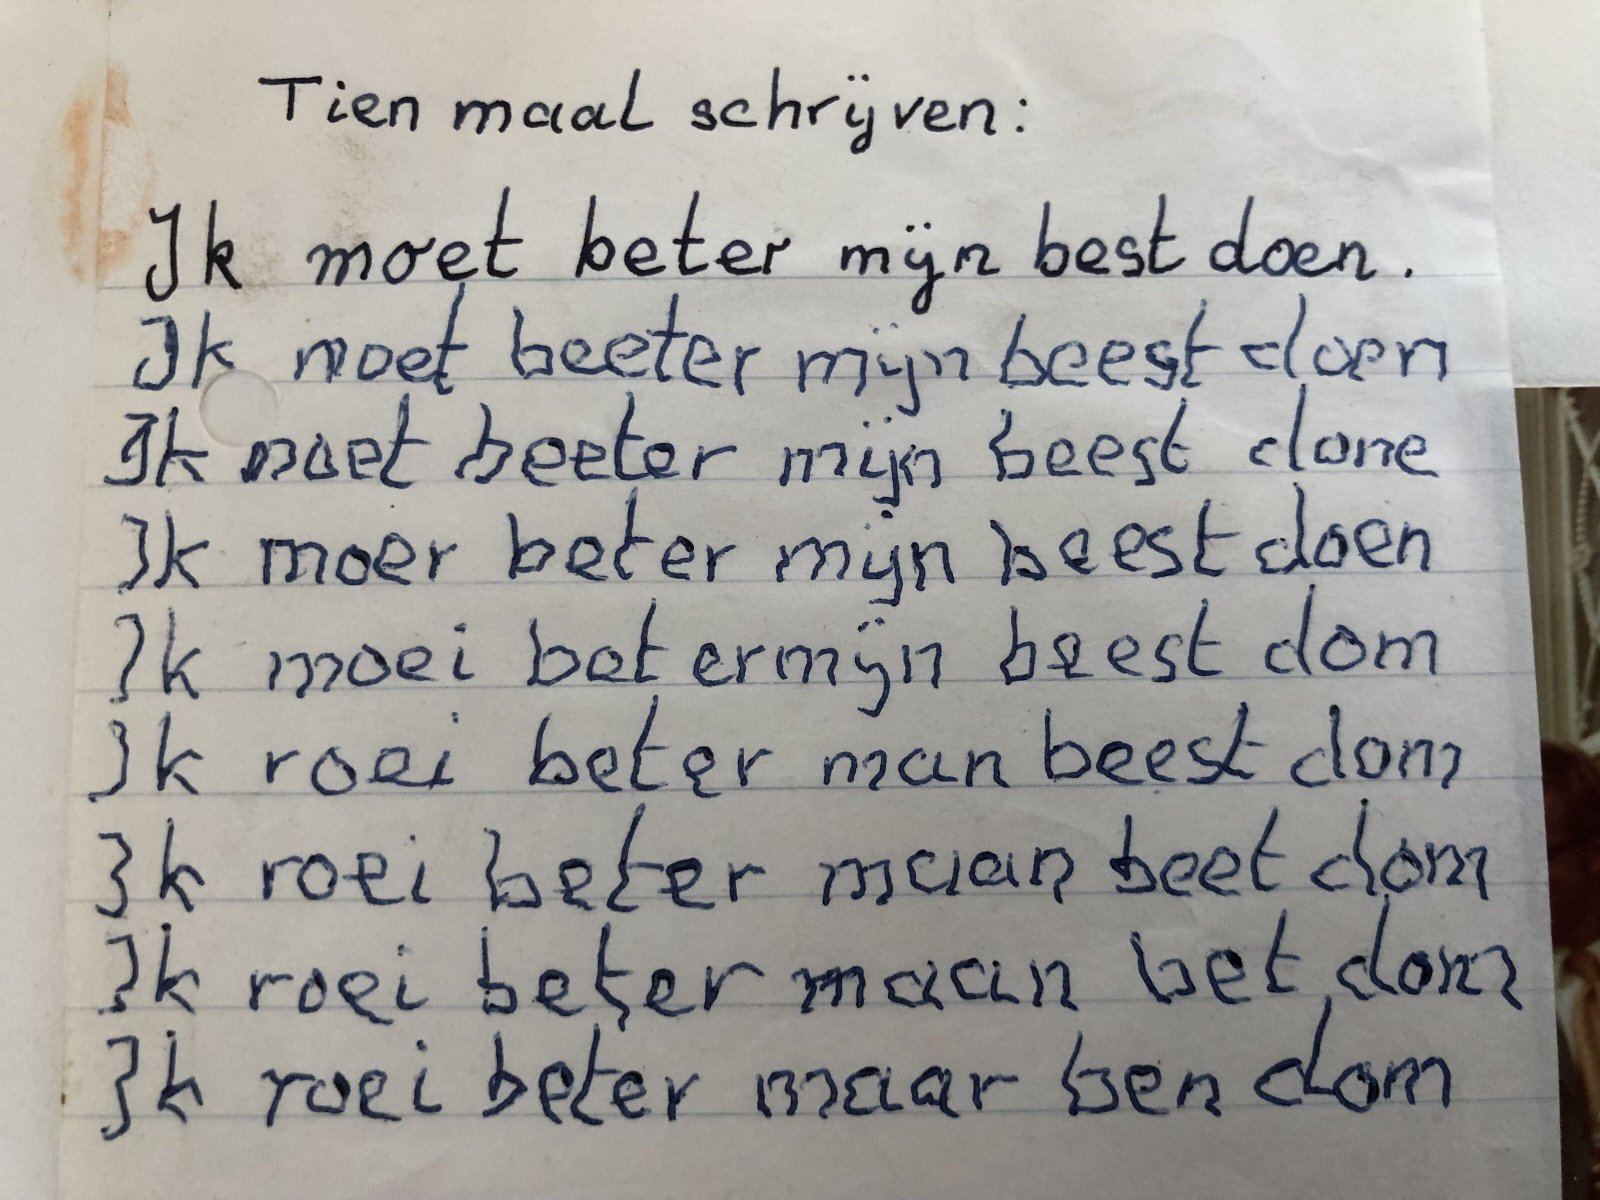 Tien maal schrijven:
Ik moet beter mijn best doen.
Ik moet beeter mijn beest doen
Ik moet beeter mijn beest done
Ik moer beter mijn beest doen
Ik moei bet ermijn beest dom
Ik roei beter man beest dom
Ik roei beter maan beet dom
Ik roei beter maan bet dom
Ik roei beter maar ben dom